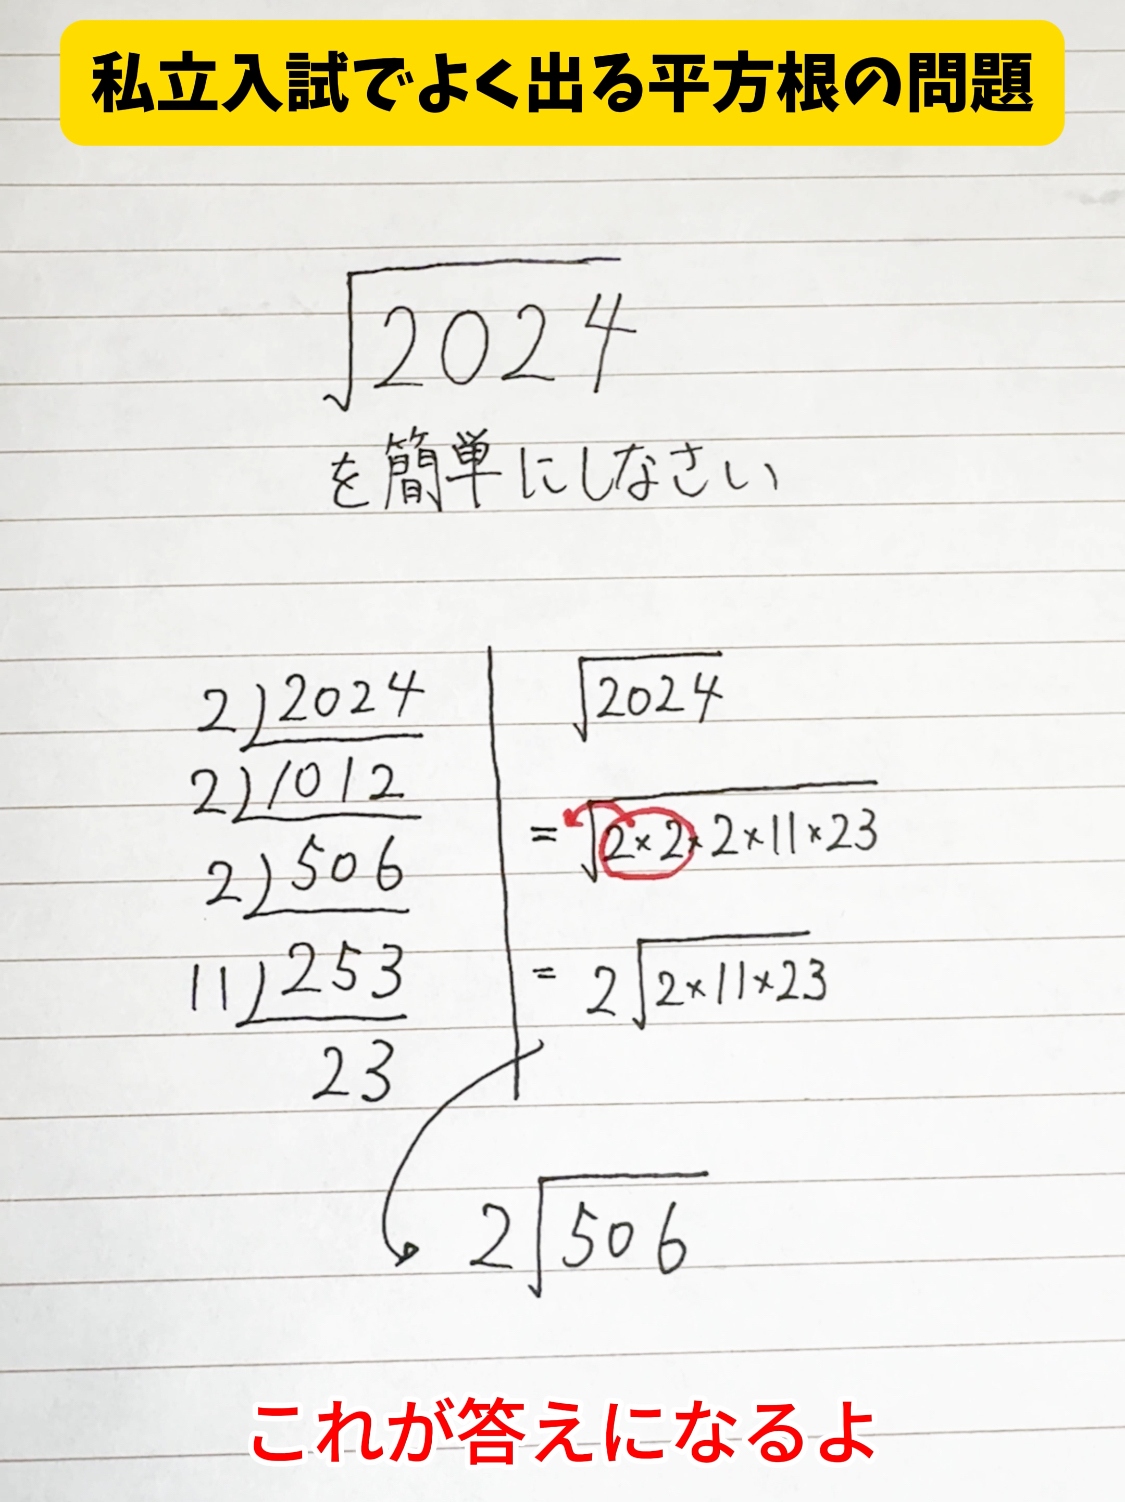 私立入試でよく出る平方根の問題
√2024
を簡単にしなさい
2)2024
2)1012
2)506
11)253
23
√2024
= √2×2×2×11×23
= 2√2×11×23
2√506
これが答えになるよ